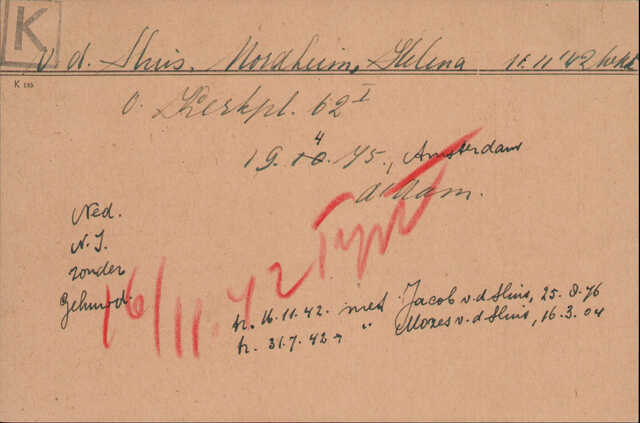 K
v. d. Sluis, Nordheim, Helena 15.11.'42 wkd
K 133
O. Kerkpl. 62 I
4
19.10.'75, Amsterdam
A'dam.
Ned.
N.I.
zonder
Gehuwd.
16/11.42 Typ
tr. 16.11.42. met Jacob v.d Sluis, 25.8.76
tr. 31.7.42 " Mozes v.d Sluis, 16.3.04